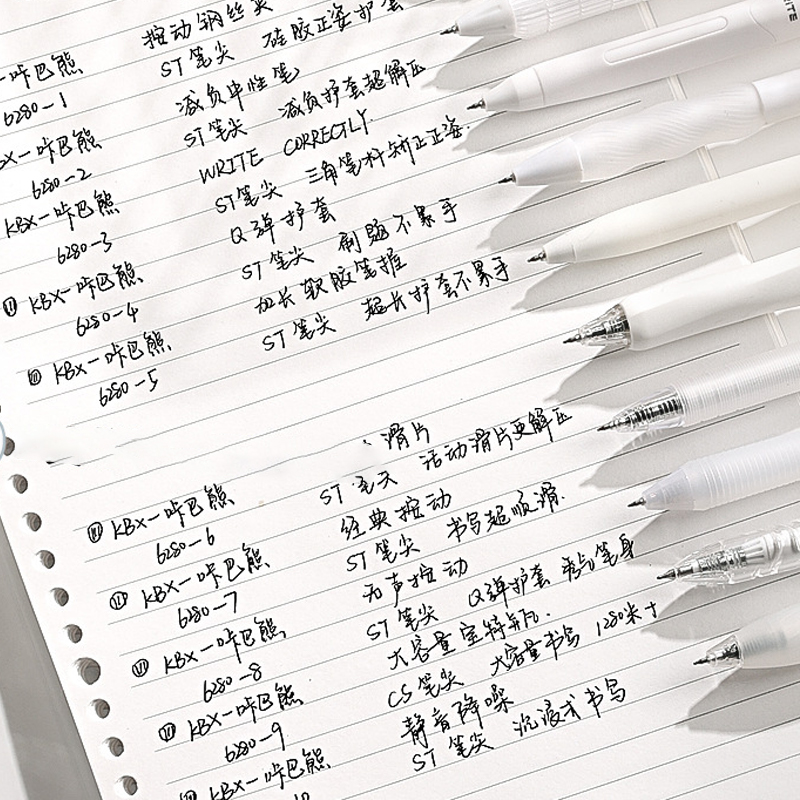 按动钢丝夹
KBX-咔巴熊 ST笔尖 硅胶正姿护套
6280-1 减负中性笔
KBX-咔巴熊 ST笔尖 减负护套超解压
6280-2 WRITE CORRECTLY
KBX-咔巴熊 ST笔尖 三角笔杆矫正正姿.
6280-3 Q弹护套
KBX-咔巴熊 ST笔尖 刷题不累手
6280-4 加长软胶笔握
KBX-咔巴熊 ST笔尖 超长护套不累手
6280-5
滑片
KBX-咔巴熊 ST笔尖 活动滑片更解压
6280-6 经典按动
KBX-咔巴熊 ST笔尖 书写超顺滑.
6280-7 无声按动
KBX-咔巴熊 ST笔尖 Q弹护套 笔身
6280-8 大容量宝特瓶.
KBX-咔巴熊 CS笔尖 大容量书写 1280米+
6280-9 静音降噪
KBX-咔巴熊 ST笔尖 沉浸式书写
10